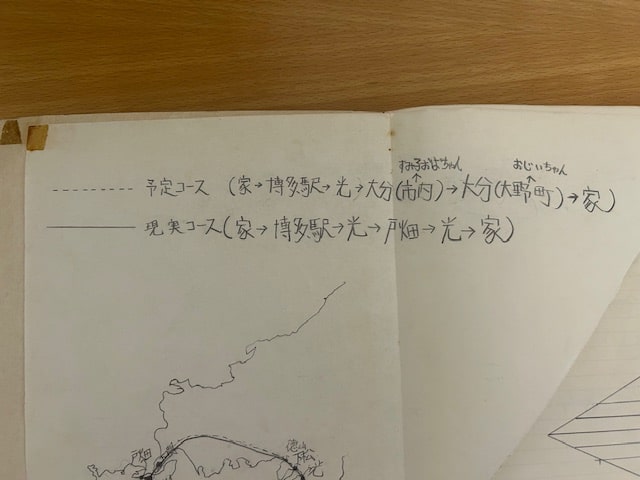 すみ子おばちゃん おじいちゃん
予定コース (家→博多駅→光→大分(市内)→大分(大野町)→家)
現実コース(家→博多駅→光→戸畑→光→家)
戸畑 徳山
下松
光